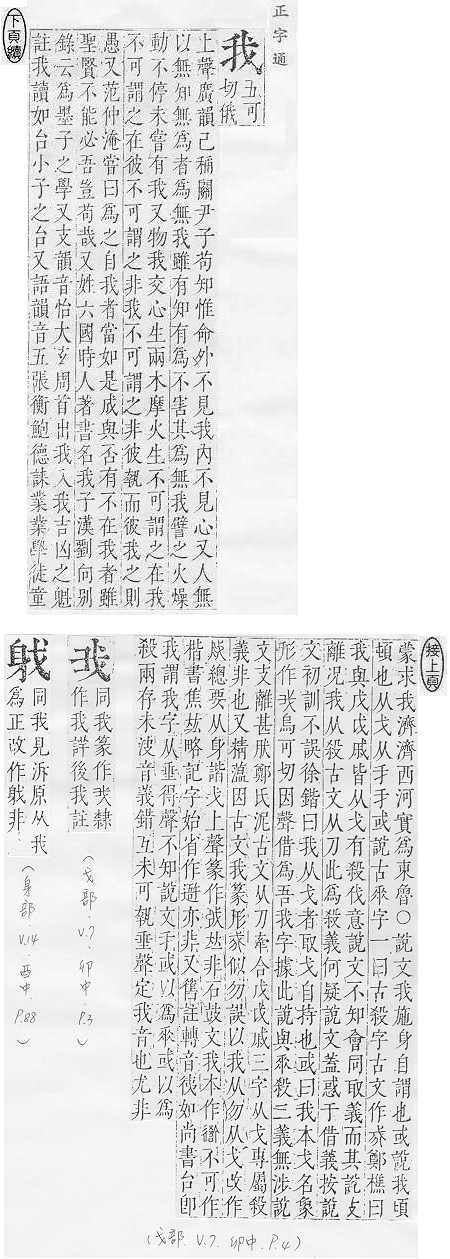 正字通
我
五可切俄
上聲廣韻己稱關尹子苟知惟命外不見我內不見心又人無
以無知無為者為無我雖有知有為不害其為無我譬之火燥
動不停未嘗有我又物我交心生兩木摩火生不可謂之在我
不可謂之在彼不可謂之非我不可謂之非彼執而彼我之則
愚又范仲淹嘗曰為之自我者當如是成與否有不在我者雖
聖賢不能必吾豈苟哉又姓六國時人著書名我子漢劉向別
錄云為墨子之學又支韻音怡大玄周首出我入我吉凶之魁
註我讀如台小子之台又語韻音五張衡鮑德誄業業學徒童
下頁續
接上頁
蒙求我濟濟西河實為東魯○說文我施身自謂也或說我頃
頓也从戈从𠂹𠂹或說古𠂹字一曰古殺字古文作𢦓鄭樵曰
我與戊戌戚皆从戈有殺伐意說文不知會同取義而其說支
離況我从殺古文从刀此為殺義何疑說文蓋惑于借義按說
文初訓不誤徐鍇曰我从戈者取戈自持也或曰我本戈名象
形作𢦐烏可切因聲借為吾我字據此說與𠂹殺三義無涉說
文支離甚厭鄭氏泥古文从刀牽合戊戌戚三字从戈專屬殺
義非也又精薀因古文我篆形𢦓似勿誤以我从勿从戈改作
總要从身諧戈上聲篆作
非石鼓文我不作
不可作
楷書焦竑略記字始省作
亦非又舊註轉音彼如尚書台卽
我謂我字从垂得聲不知說文𠂹或以為𠂹或以為
殺兩存未決音義錯互未可執垂聲定我音也尤非
(戈部. V.7. 卯中. P.4)
𢦐
同我篆作𢦐隸
作我詳後我註
(戈部. V.7 卯中. P.3)
躱
同我見泝原从我
為正改作躱非
(身部 V.14. 酉中. P.88)